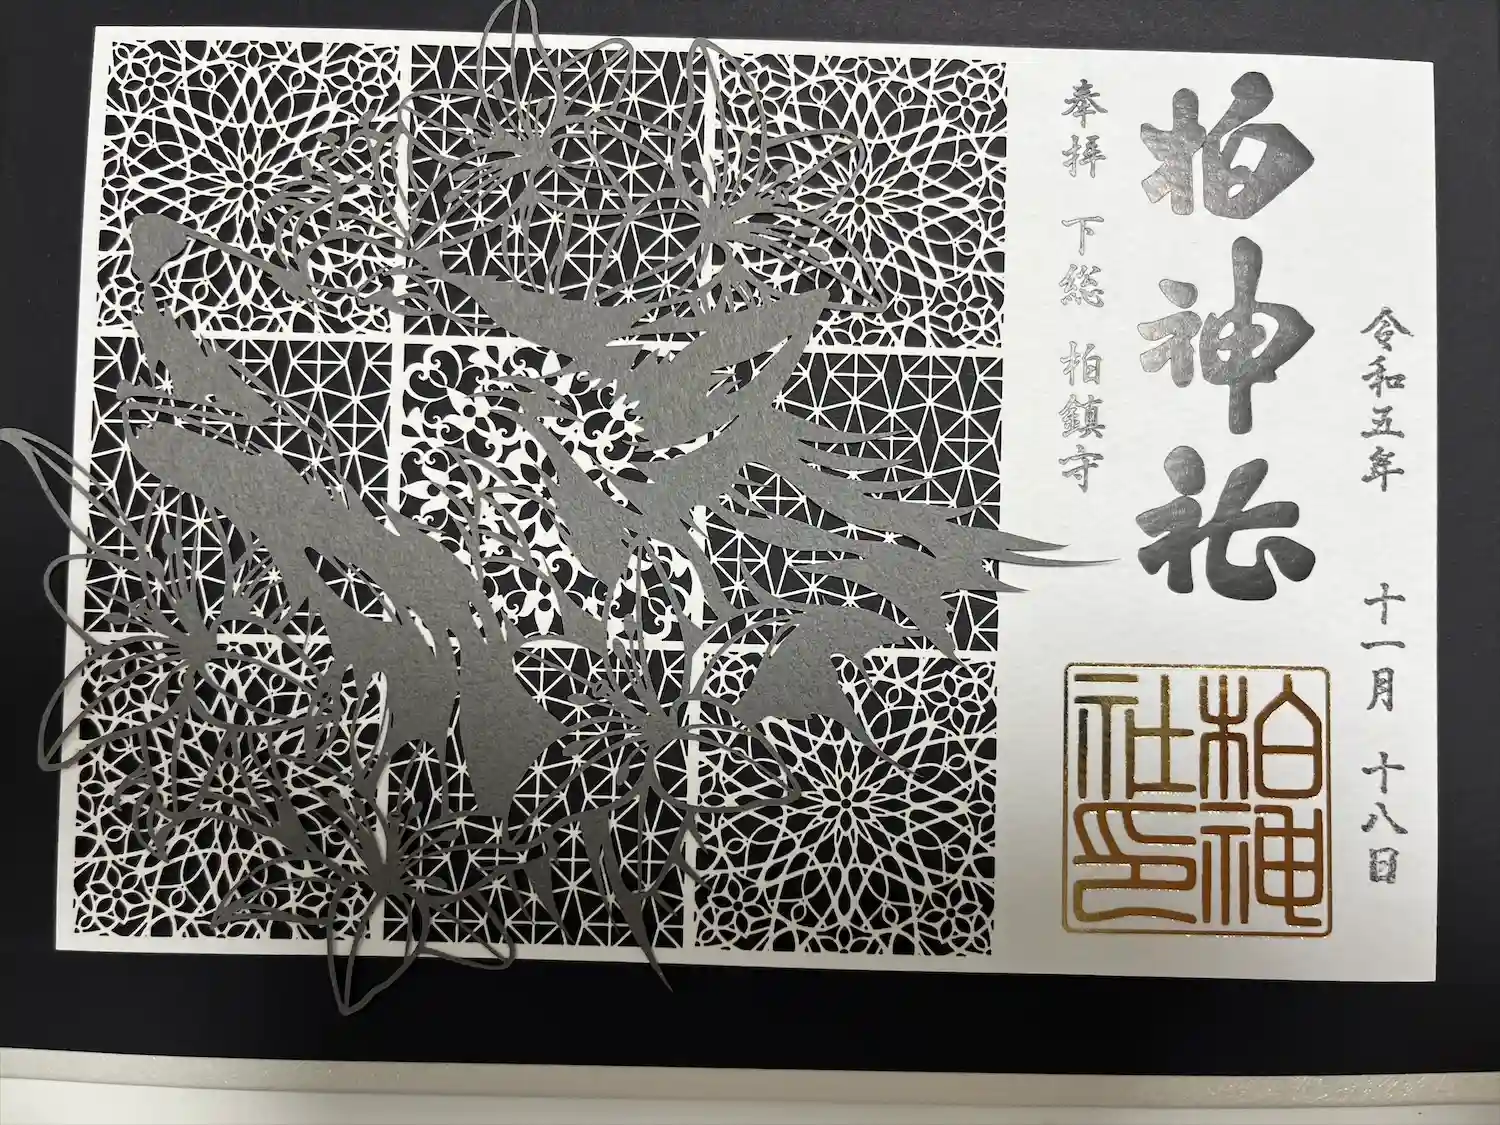 令和五年 十一月 十八日
柏神社
奉拝 下総 柏鎮守
柏神
社印